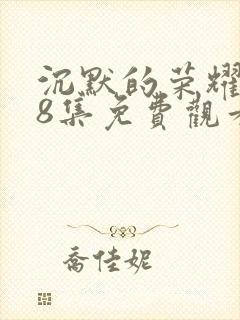 沉默的荣耀
8集免費觀
喬佳妮